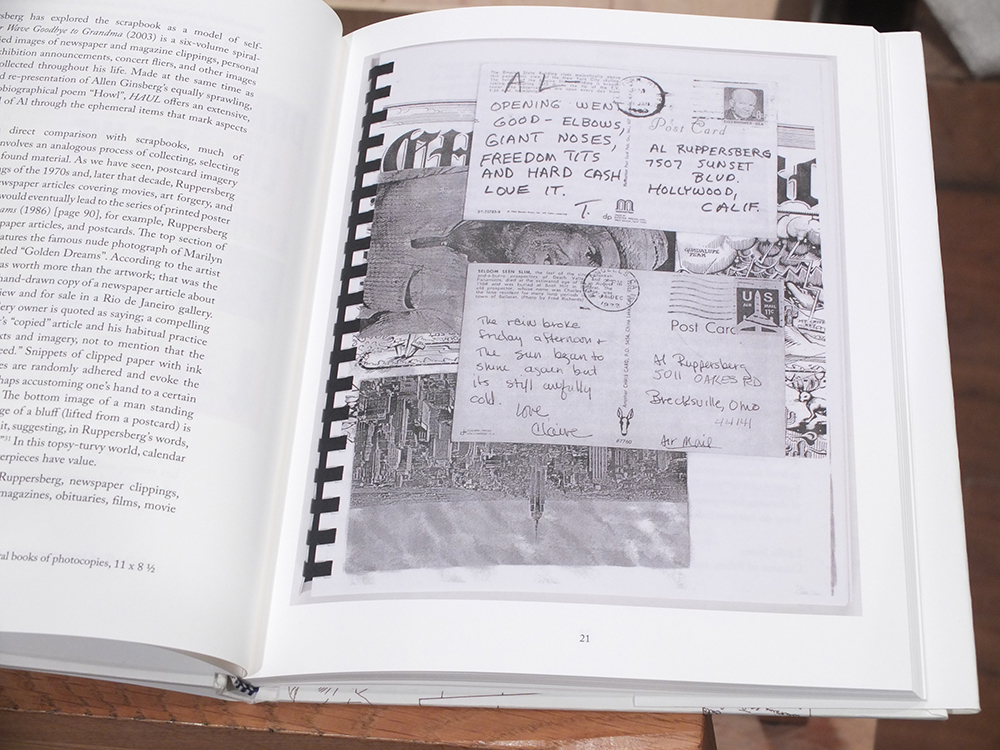 sberg has explored the scrapbook as a model of self-
r Wave Goodbye to Grandma (2003) is a six-volume spiral-
ied images of newspaper and magazine clippings, personal
xhibition announcements, concert fliers, and other images
ollected throughout his life. Made at the same time as
d re-presentation of Allen Ginsberg's equally sprawling,
obiographical poem "Howl", HAUL offers an extensive,
l of Al through the ephemeral items that mark aspects
direct comparison with scrapbooks, much of
nvolves an analogous process of collecting, selecting
found material. As we have seen, postcard imagery
gs of the 1970s and, later that decade, Ruppersberg
ewspaper articles covering movies, art forgery, and
would eventually lead to the series of printed poster
ams (1986) [page 90], for example, Ruppersberg
paper articles, and postcards. The top section of
atures the famous nude photograph of Marilyn
tled "Golden Dreams". According to the artist
as worth more than the artwork; that was the
hand-drawn copy of a newspaper article about
view and for sale in a Rio de Janeiro gallery.
ery owner is quoted as saying; a compelling
's "copied" article and his habitual practice
xts and imagery, not to mention that the
eed." Snippets of clipped paper with ink
es are randomly adhered and evoke the
haps accustoming one's hand to a certain
The bottom image of a man standing
ge of a bluff (lifted from a postcard) is
it, suggesting, in Ruppersberg's words,
"31 In this topsy-turvy world, calendar
erpieces have value.
Ruppersberg, newspaper clippings,
magazines, obituaries, films, movie
al books of photocopies, 11 x 8 ½
AL—
OPENING WENT
GOOD - ELBOWS,
GIANT NOSES,
FREEDOM TITS
AND HARD CASH
LOVE IT.
T.
Post Card
AL RUPPERSBERG
7507 SUNSET
BLVD.
HOLLYWOOD,
CALIF.
GUADALUPE
PEAK
SELDOM SEEN SLIM,
The rain broke
Friday afternoon +
The sun began to
shine again but
its still awfully
cold.
Love
Claire
US
AIR MAIL 11c
Post Card
Al Ruppersberg
5011 OAKES RD
Brecksville, Ohio
44141
Air Mail
21